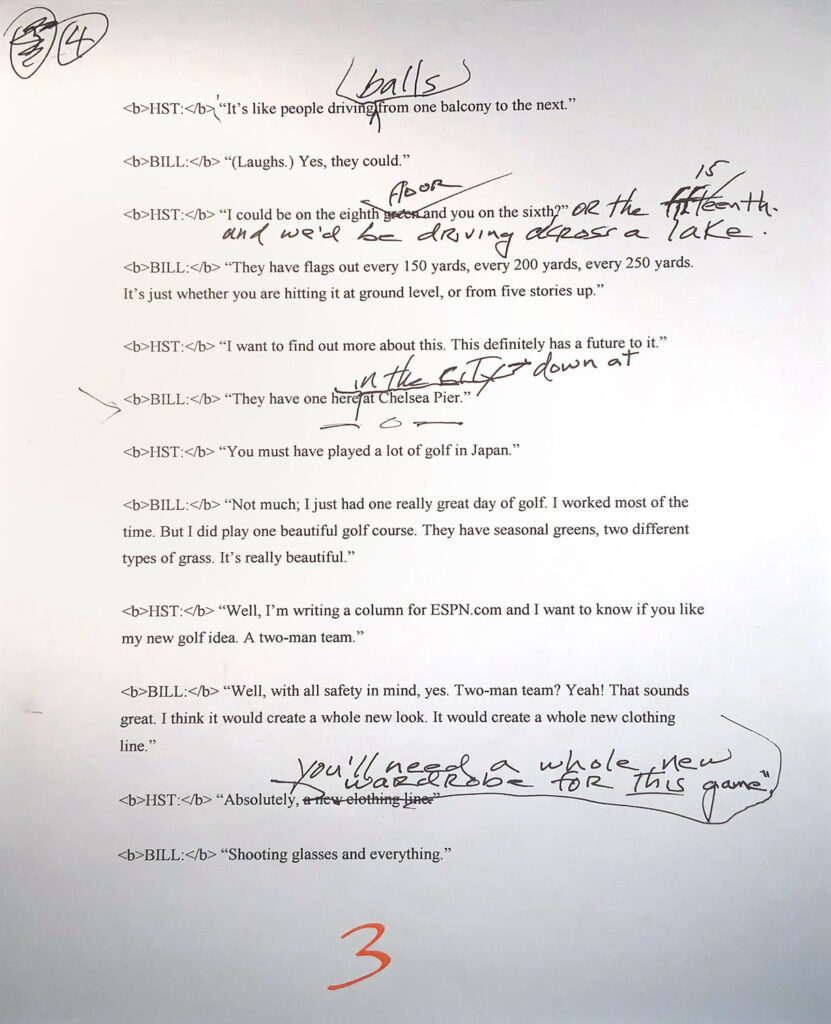 4
balls
<b>HST:</b> “It’s like people driving from one balcony to the next.”
<b>BILL:</b> “(Laughs.) Yes, they could.”
floor
15
<b>HST:</b> “I could be on the eighth green and you on the sixth?” OR the fifteenth.
and we'd be driving across a lake.
<b>BILL:</b> “They have flags out every 150 yards, every 200 yards, every 250 yards.
It’s just whether you are hitting it at ground level, or from five stories up.”
<b>HST:</b> “I want to find out more about this. This definitely has a future to it.”
in the CITY down at
<b>BILL:</b> “They have one here at Chelsea Pier.”
— o —
<b>HST:</b> “You must have played a lot of golf in Japan.”
<b>BILL:</b> “Not much; I just had one really great day of golf. I worked most of the
time. But I did play one beautiful golf course. They have seasonal greens, two different
types of grass. It’s really beautiful.”
<b>HST:</b> “Well, I’m writing a column for ESPN.com and I want to know if you like
my new golf idea. A two-man team.”
<b>BILL:</b> “Well, with all safety in mind, yes. Two-man team? Yeah! That sounds
great. I think it would create a whole new look. It would create a whole new clothing
line.”
you'll need a whole new
wardrobe for this game"
<b>HST:</b> “Absolutely, a new clothing line”
<b>BILL:</b> “Shooting glasses and everything.”
3